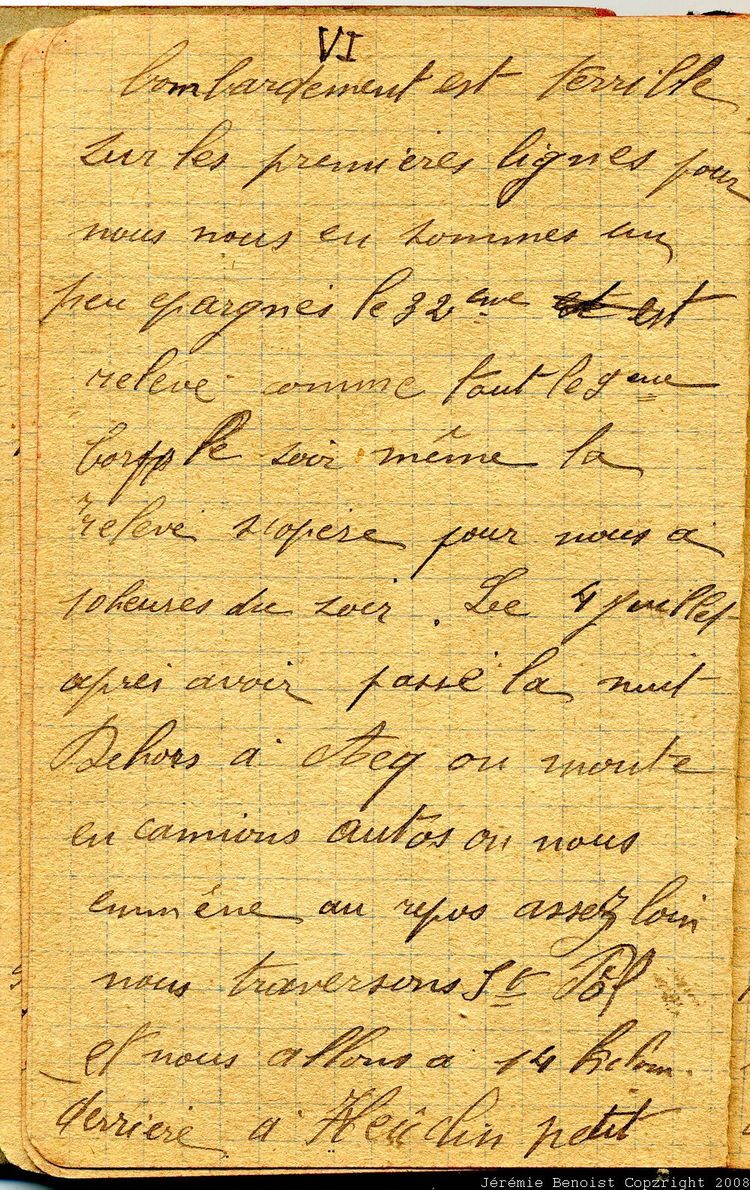 VI
bombardement est terrible
sur les premières lignes pour
nous nous en sommes un
peu epargnés le 32eme et est
relevé comme tout le 9eme
Corps le soir même la
relevé s'opère pour nous a
10 heures du soir. Le 4 Juillet
après avoir passé la nuit
Dehors à Acq on monte
en camions autos on nous
emmène au repos assez loin
nous traversons St Pôl
et nous allons a 14 kilom.
derrière a Heûclin petit
Jérémie Benoist Copyright 2008